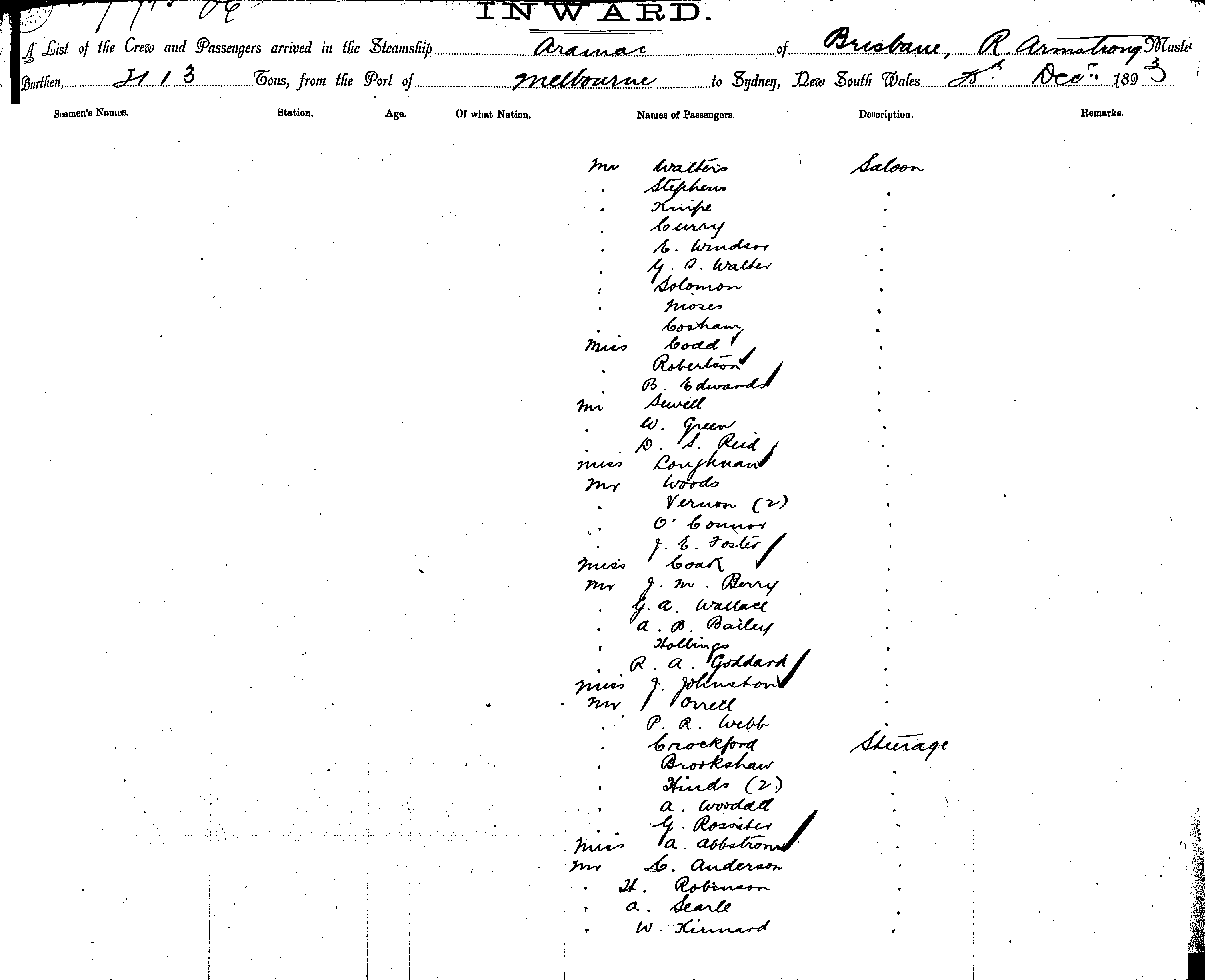 INWARD.
A List of the Crew and Passengers arrived in the Steamship Aramac of Brisbane, R. Armstrong Maste
Burthen, Tons, from the Port of Melbourne to Sydney, New South Wales Decr. 1893
Seamen's Names. Station. Age. Of what Nation. Names of Passengers. Description. Remarks.
Mr Walters Saloon
" Stephens "
" Knipe "
" Curry "
" E. Windsor "
" G. S. Walter "
" Solomon "
" Moses "
" Cosham "
Miss Codd "
" Robertson "
" B. Edwards "
Mr Sewell "
" W. Green "
" D. S. Reid "
Miss Loughnan "
Mr Woods "
" Vernon (2) "
" O'Connor "
" J. E. Foster "
Miss Coak "
Mr J. M. Berry "
" G. A. Wallace "
" A. B. Bailey "
" Hollings "
" R. A. Goddard "
Miss J. Johnston "
Mr Orrell "
" P. R. Webb "
" Crockford Steerage
" Brookshaw "
" Hinds (2) "
" A. Woodall "
" G. Rossiter "
Miss A. "
Mr C. Anderson "
" H. Robinson "
" A. Searle "
" W. Kinnard "